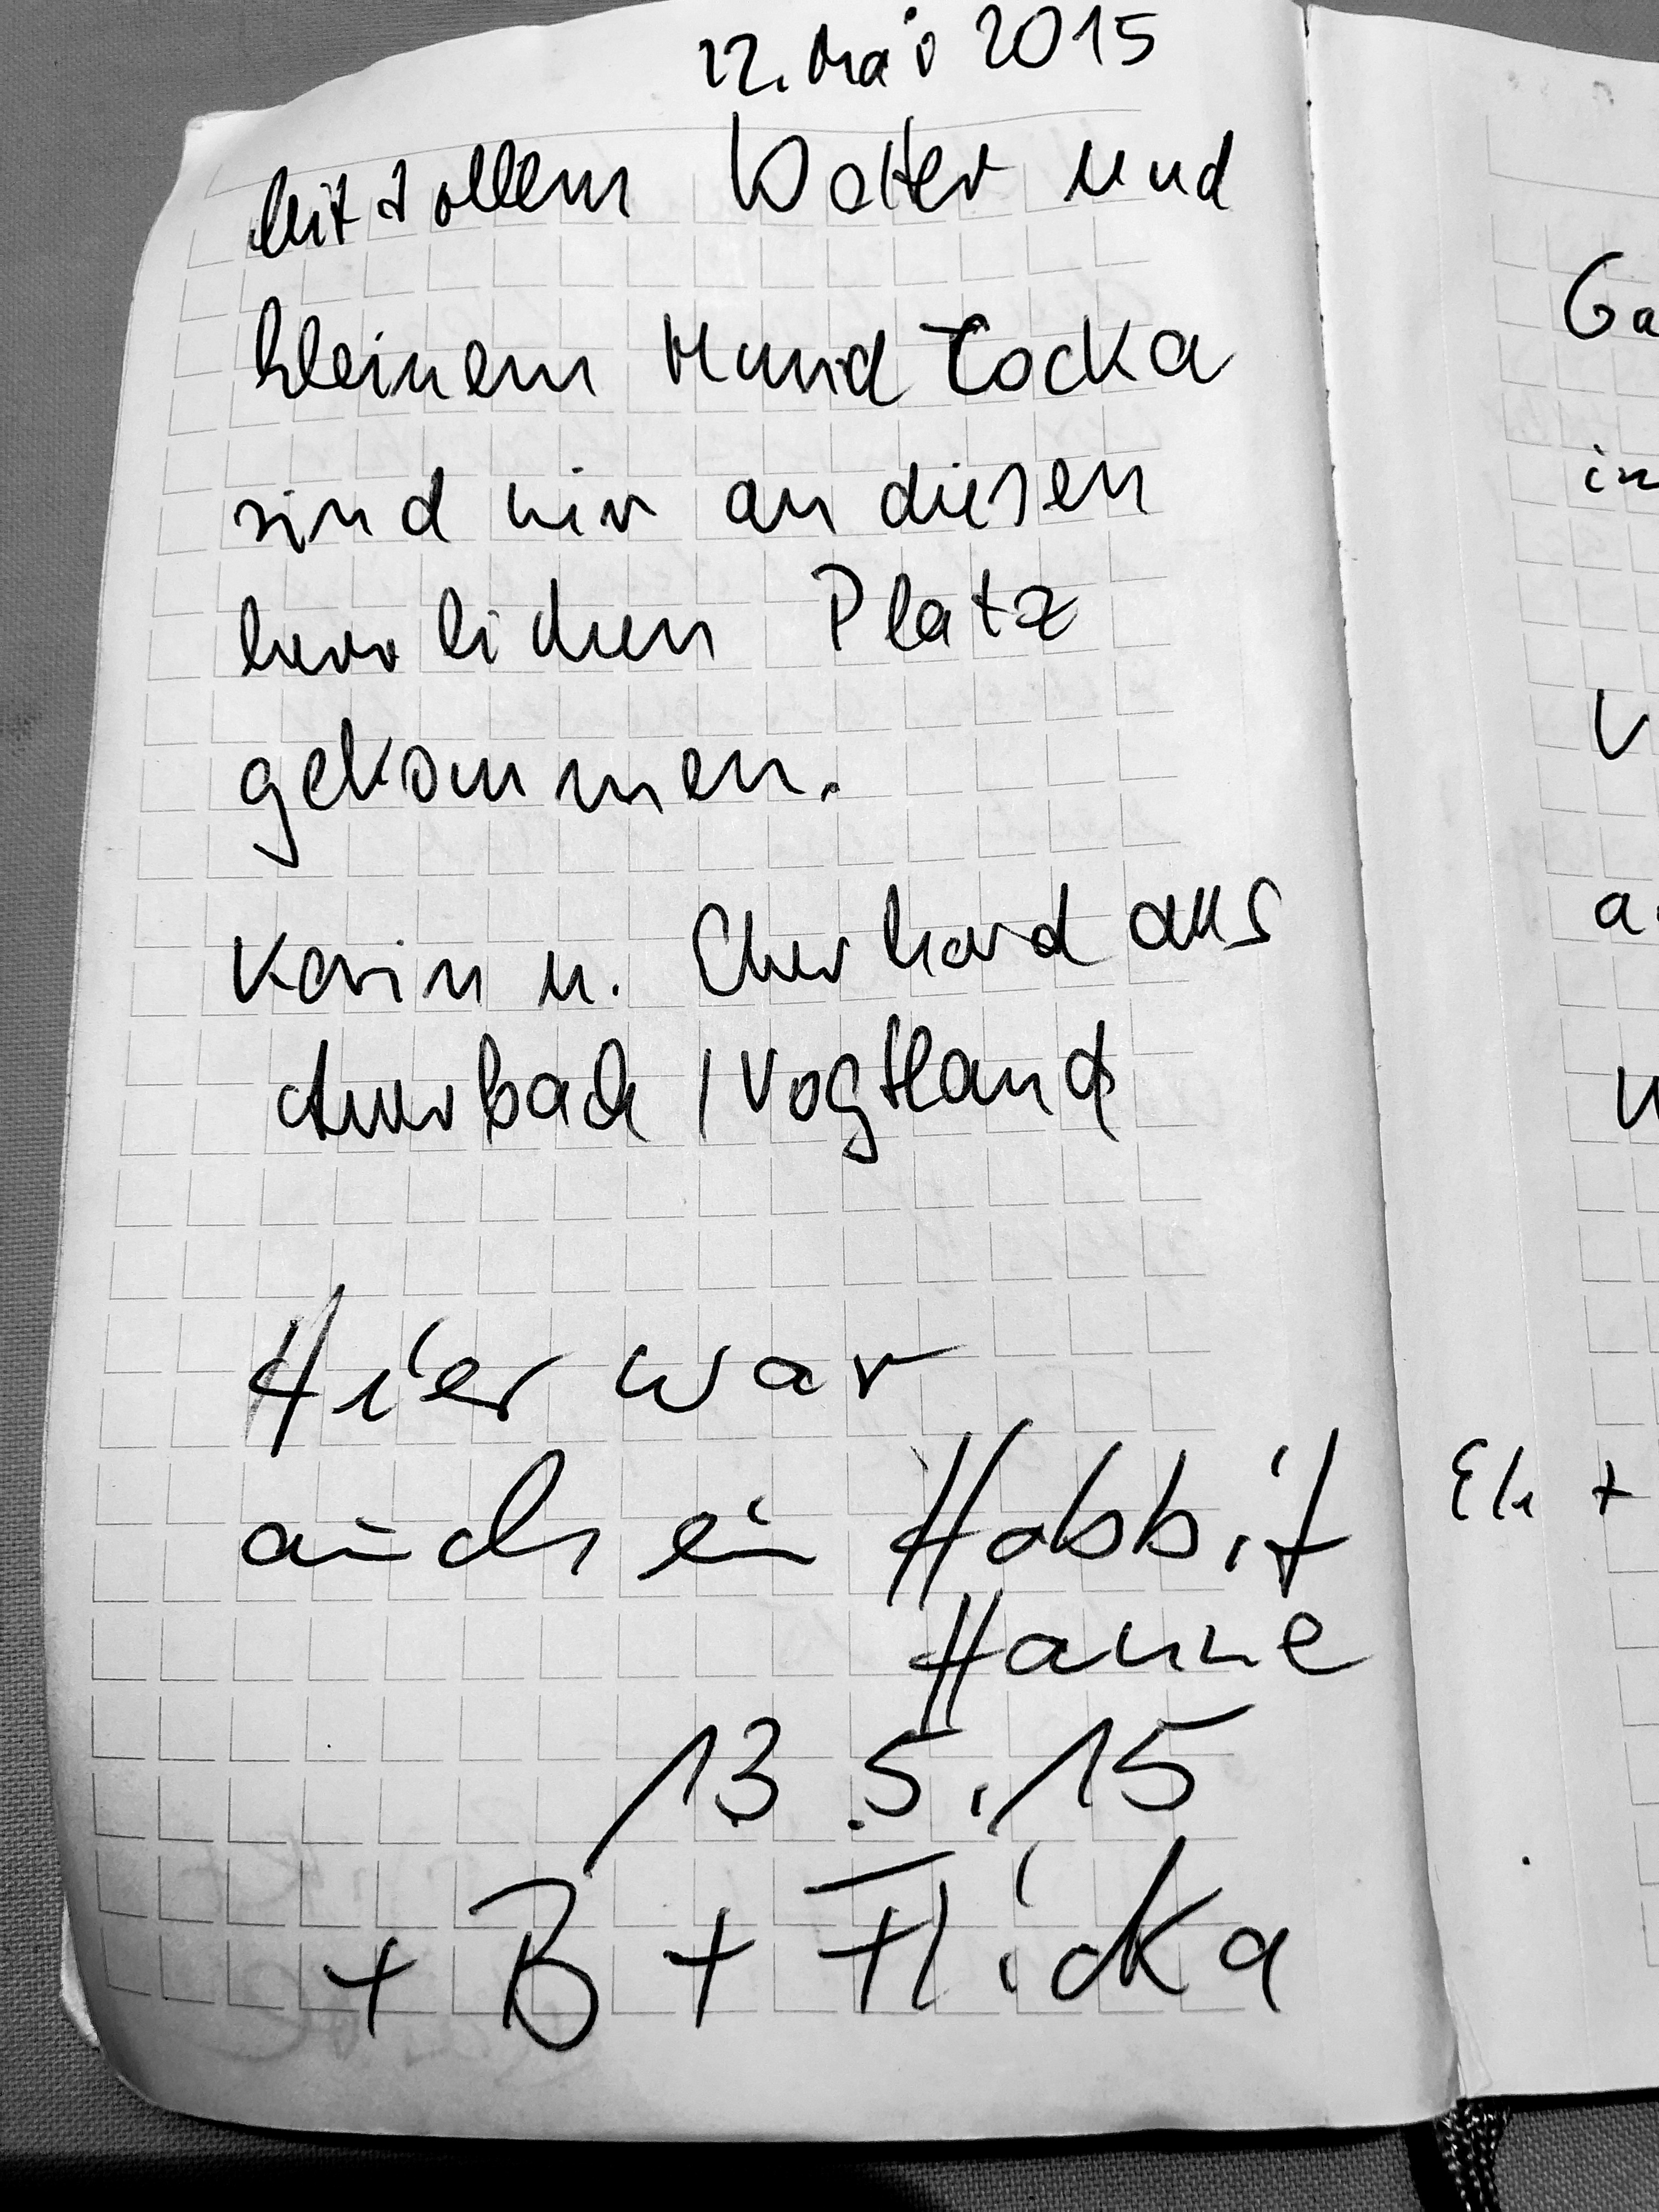 12. Mai 2015
Mit tollem Wetter und
kleinem Hund Cocka
sind wir an diesen
herrlichen Platz
gekommen.
Karin u. Eberhard aus
Auerbach / Vogtland
Hier war
auch ein Hobbit
Hanne
13.5.15
+ B + Flicka
Ga
in
V
a
Eh +